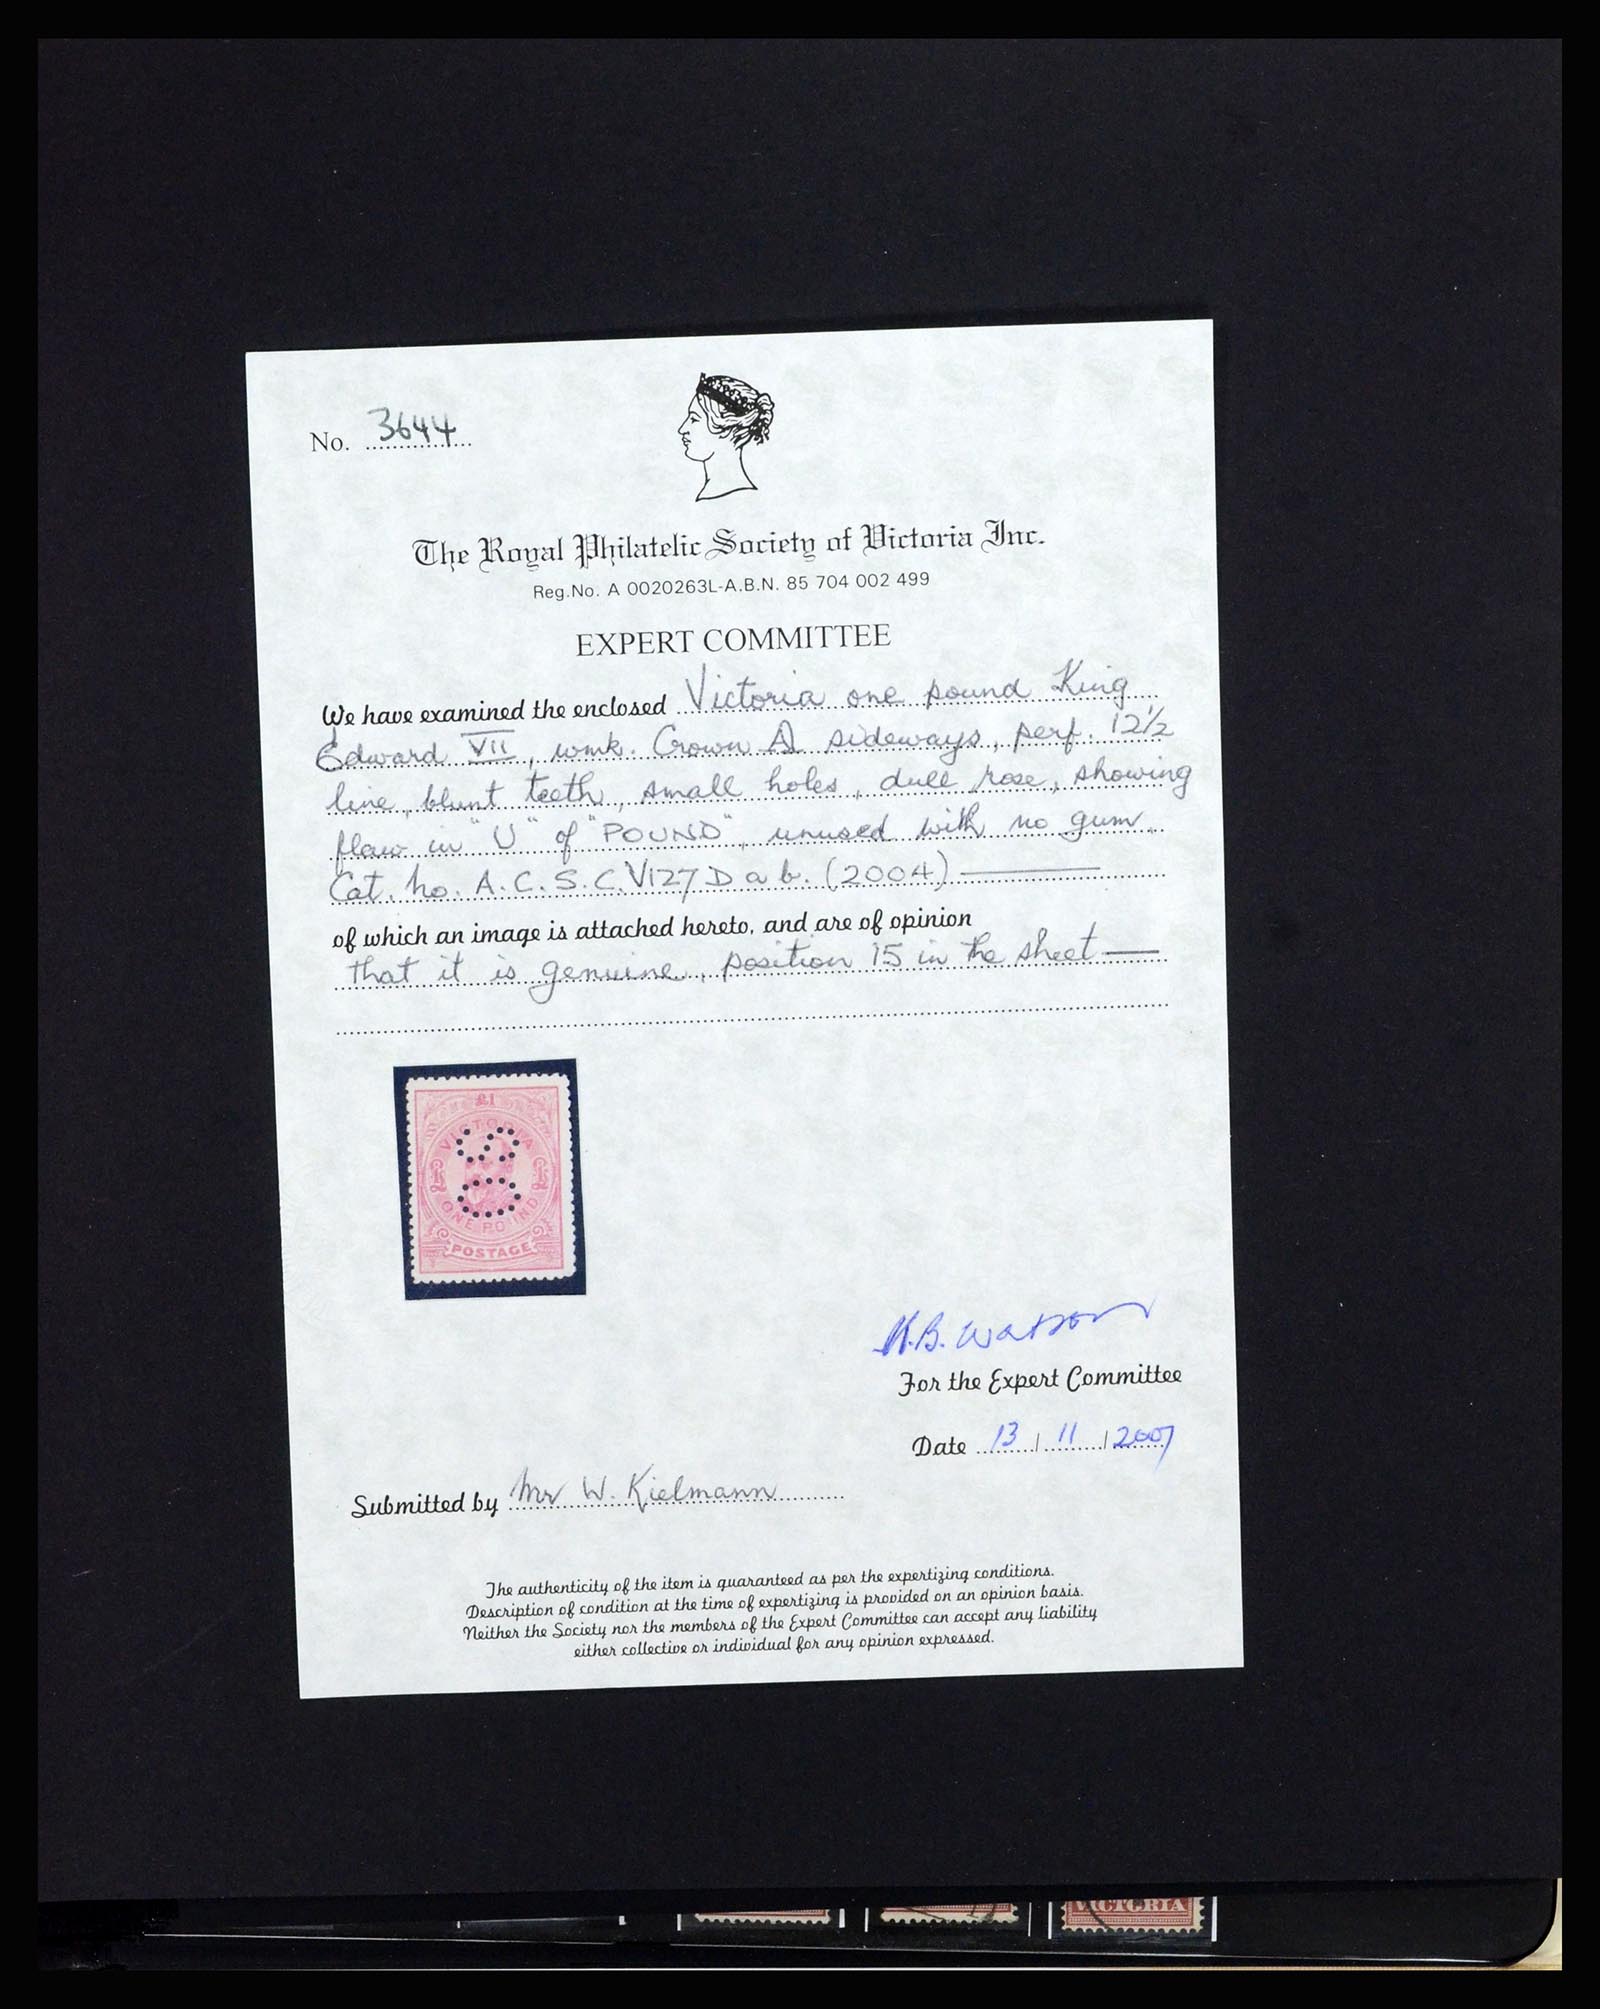 No. 3644
The Royal Philatelic Society of Victoria Inc.
Reg.No. A 0020263L-A.B.N. 85 704 002 499
EXPERT COMMITTEE
We have examined the enclosed Victoria one pound King
Edward VII, wmk. Crown A sideways, perf. 12½
line, blunt teeth, small holes, dull rose, showing
flaw in "U" of "POUND", unused with no gum.
Cat. no. A.C.S.C. V127Dab. (2004)
of which an image is attached hereto, and are of opinion
that it is genuine, position 15 in the sheet
£1
VICTORIA
£ £
OS
ONE POUND
POSTAGE
H.B. Watson
For the Expert Committee
Date 13 / 11 / 2007
Submitted by Mr W. Kielmann
The authenticity of the item is guaranteed as per the expertizing conditions.
Description of condition at the time of expertizing is provided on an opinion basis.
Neither the Society nor the members of the Expert Committee can accept any liability
either collective or individual for any opinion expressed.
VICTORIA